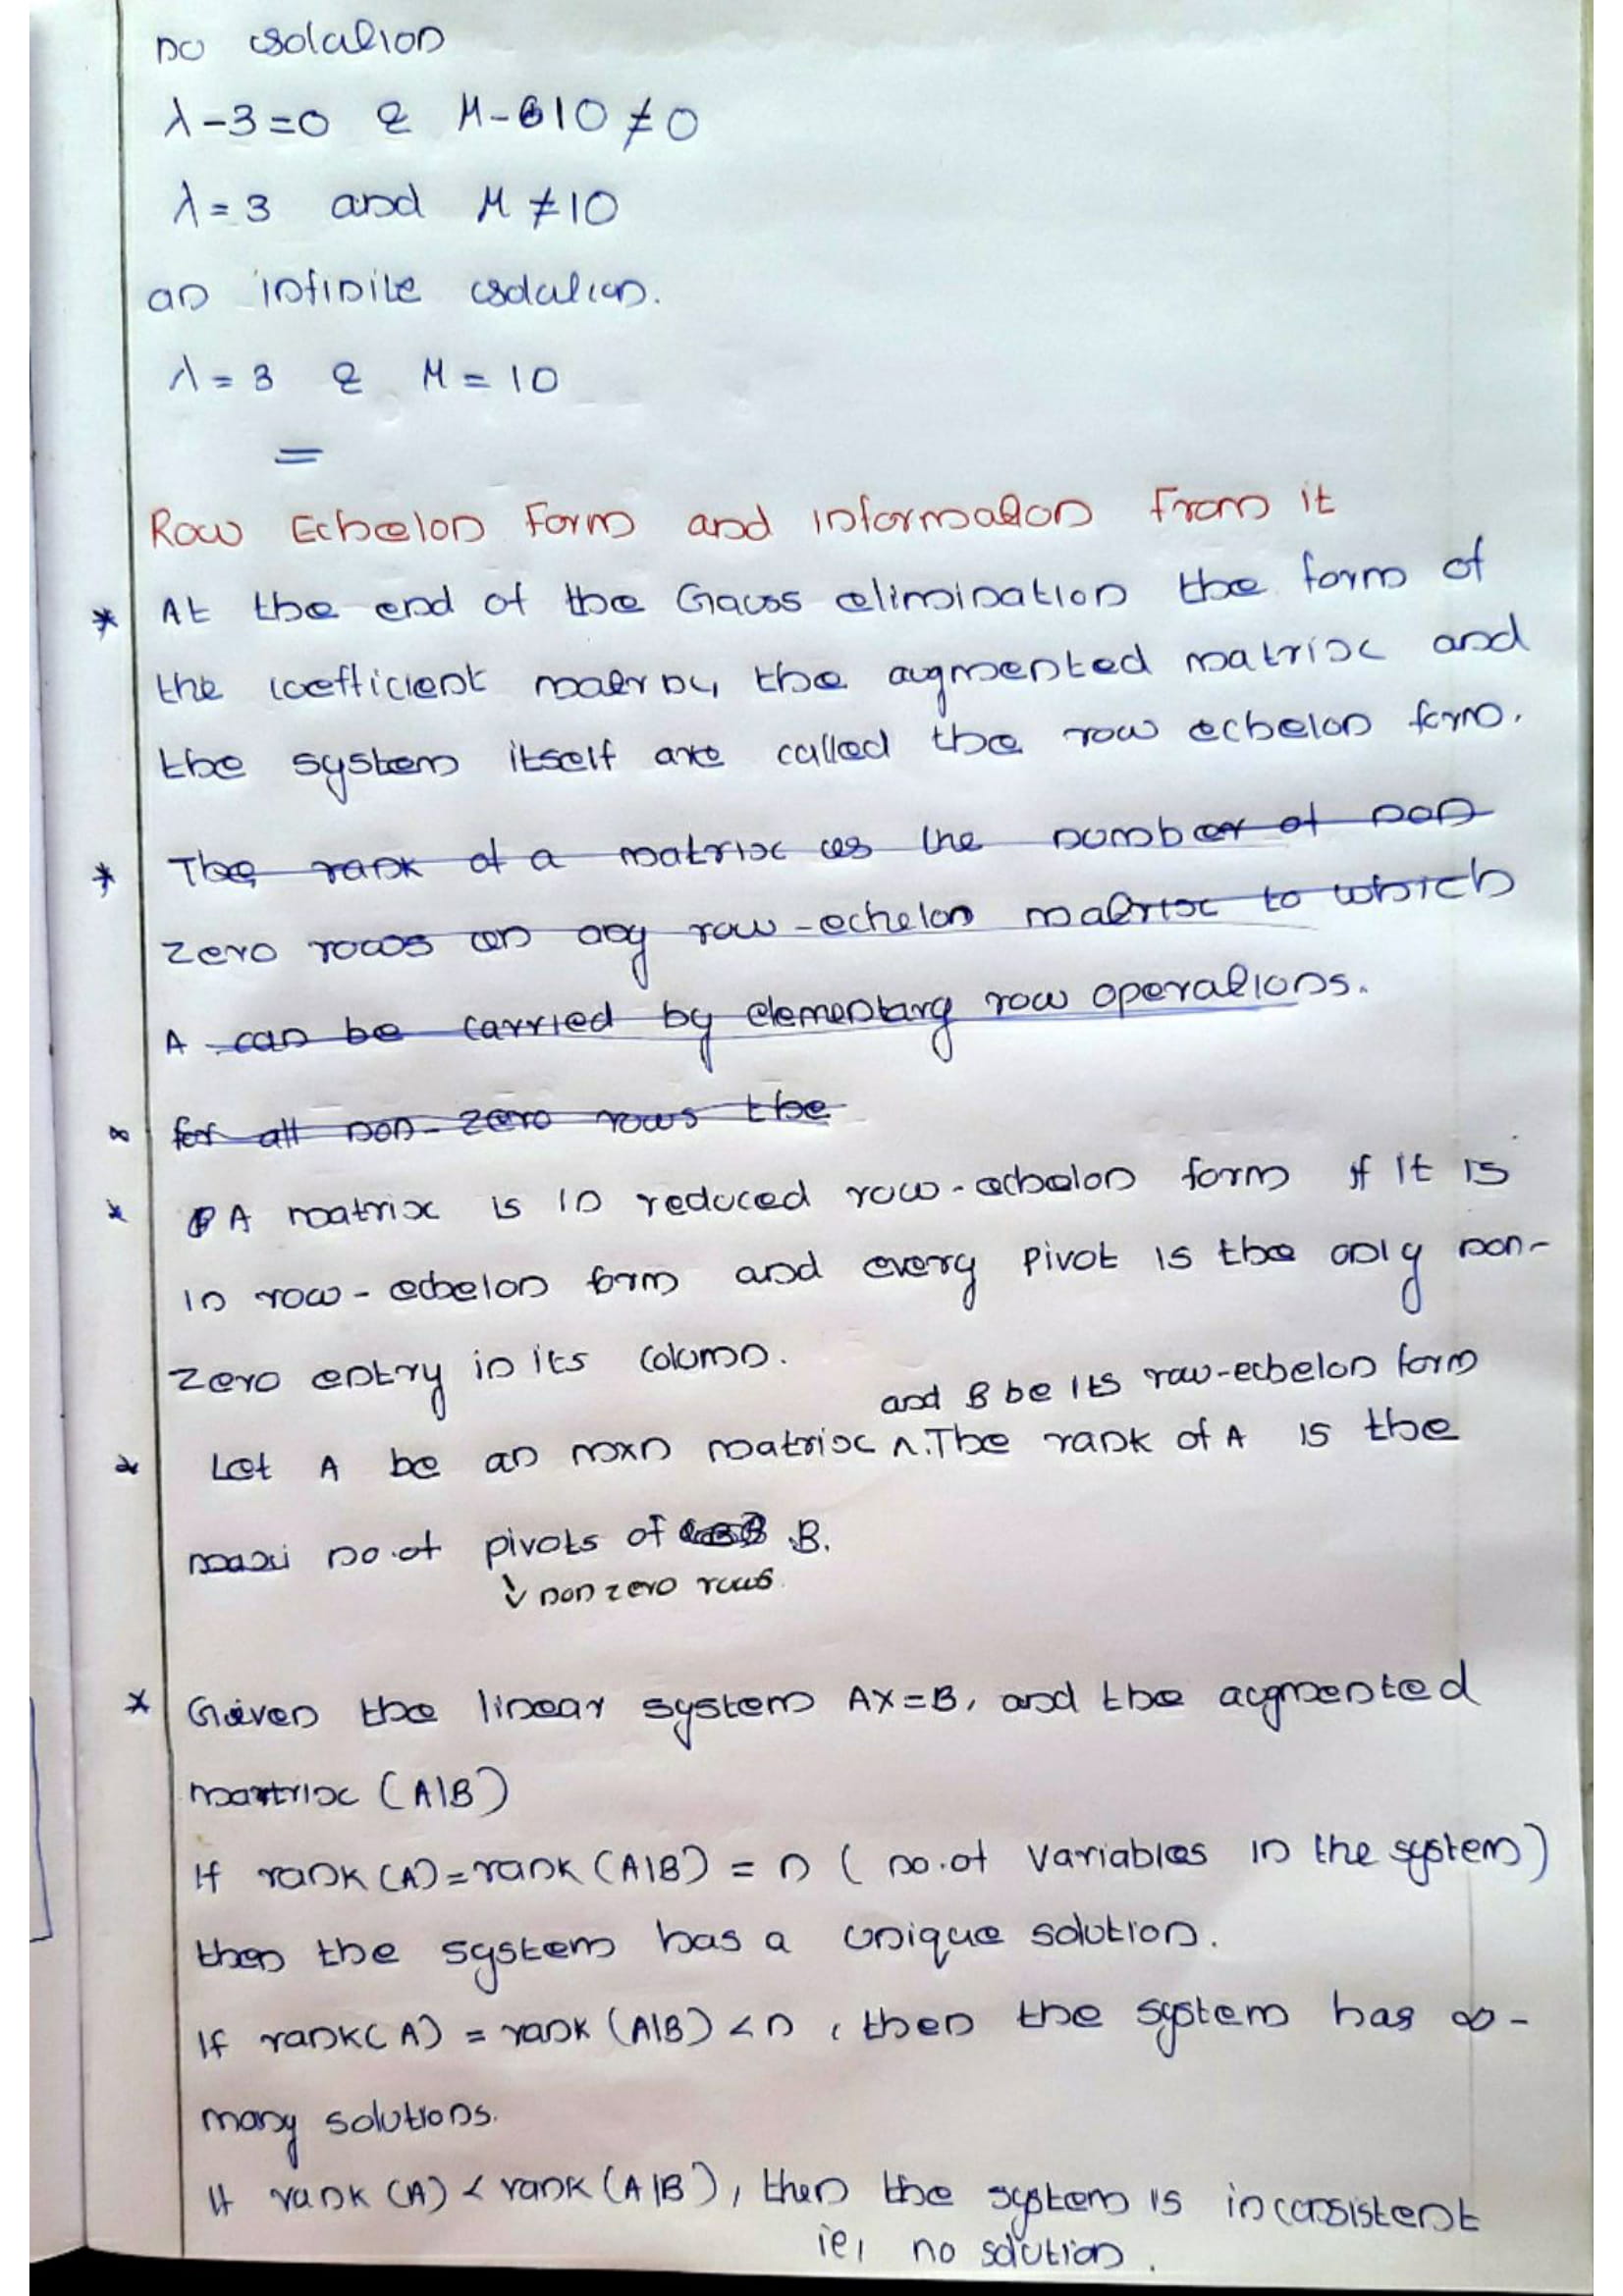 no solution
λ-3=0 & μ-10≠0
λ=3 and μ≠10
an infinite solution.
λ=3 & μ=10
=
Row Echelon Form and information from it
* At the end of the Gauss elimination the form of
the coefficient matrix, the augmented matrix and
the system itself are called the row echelon form.
* The rank of a matrix is the number of non
zero rows in any row-echelon matrix to which
A can be carried by elementary row operations.
for all non-zero rows the
* A matrix is in reduced row-echelon form if it is
in row-echelon form and every pivot is the only non-
zero entry in its column.
and B be its row-echelon form
* Let A be an mxn matrix ^. The rank of A is the
maxi no.of pivots of B.
↓ non zero rows.
* Given the linear system AX=B, and the augmented
matrix (A|B)
If rank(A)=rank(A|B) = n (no.of variables in the system)
then the system has a unique solution.
If rank(A) = rank(A|B) < n, then the system has ∞-
many solutions.
If rank(A) < rank(A|B), then the system is inconsistent
ie, no solution.